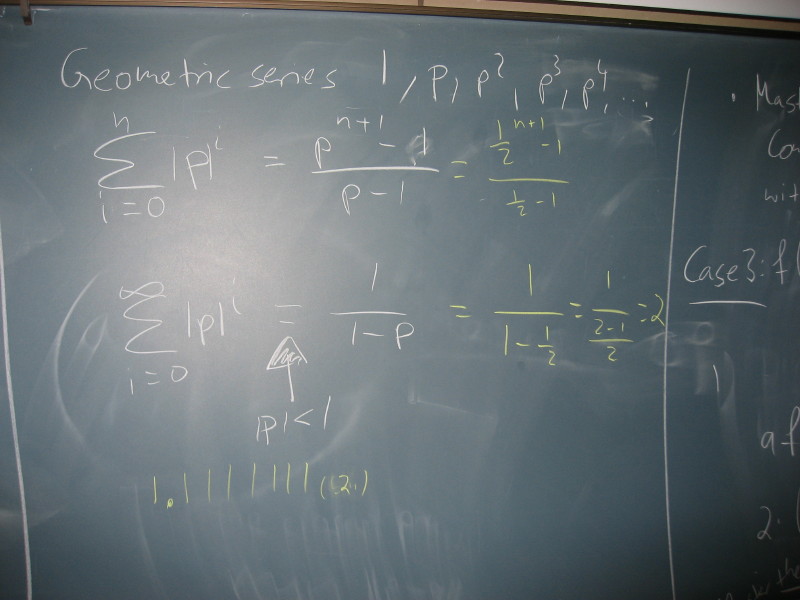 Geometric series 1, p, p², p³, p⁴, ...
n
∑ |p|^i = (p^(n+1) - 1)/(p - 1) = (1/2^(n+1) - 1)/(1/2 - 1)
i=0
∞
∑ |p|^i = 1/(1-p) = 1/(1-1/2) = 1/((2-1)/2) = 2
i=0
|p|<1
1.11111111(2.)
Case 3: f(
1
af
2.